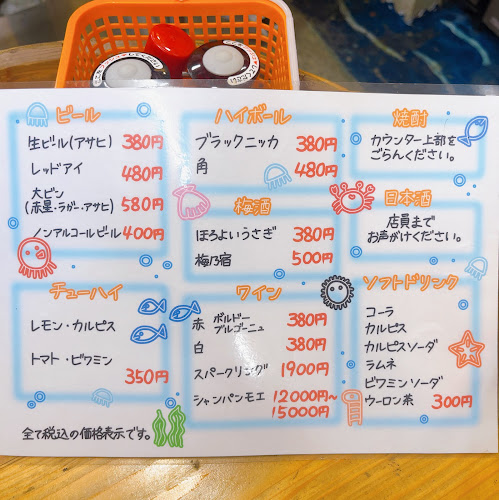 ビール
生ビール(アサヒ) 380円
レッドアイ 480円
大ビン
(赤星・ラガー・アサヒ) 580円
ノンアルコールビール 400円
チューハイ
レモン・カルピス
トマト・ビワミン
350円
全て税込の価格表示です。
ハイボール
ブラックニッカ 380円
角 480円
梅酒
ほろよいうさぎ 380円
梅乃宿 500円
ワイン
赤 ボルドー
ブルゴーニュ 380円
白 380円
スパークリング 1900円
シャンパンモエ 12000円~
15000円
焼酎
カウンター上部を
ごらんください。
日本酒
店員まで
お声がけください。
ソフトドリンク
コーラ
カルピス
カルピスソーダ
ラムネ
ビワミンソーダ
ウーロン茶 300円